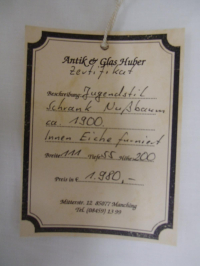 Antik & Glas Huber
Zertifikat
Beschreibung: Jugendstil
Schrank Nußbaum
ca. 1900
Innen Eiche furniert
Breite 111 Tiefe 55 Höhe 200
Preis in € 1.980,-
12 85077 Manching
Tel. (08459) 13 99